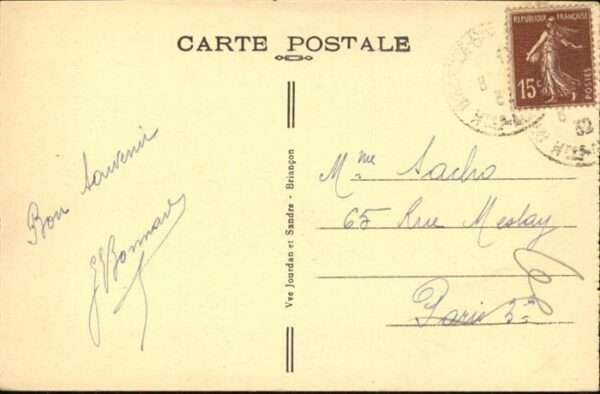 CARTE POSTALE
REPUBLIQUE FRANÇAISE
15c
POSTES
Bon souvenir
Vve Jourdan et Sandre - Briançon
Mme Sacho
65 Rue Meslay
Paris 3e